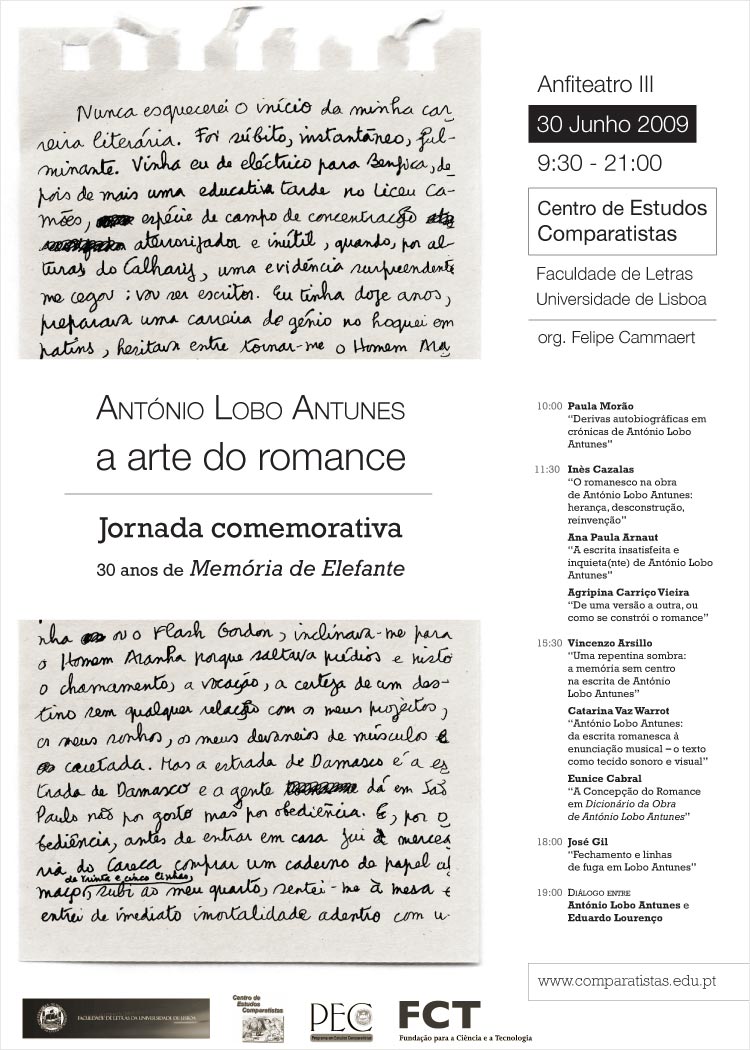 Nunca esquecerei o início da minha car
reira literária. Foi súbito, instantâneo, ful-
minante. Vinha eu de eléctrico para Benfica, de
pois de mais uma educativa tarde no Liceu Ca-
mões, espécie de campo de concentração
aterrorizador e inútil, quando, por al-
turas do Calhariz, uma evidência surpreendente
me cegou: vou ser escritor. Eu tinha doze anos,
preparava uma carreira de génio no hoquei em
patins, hesitava entre tornar-me o Homem Ara
ANTÓNIO LOBO ANTUNES
a arte do romance
Jornada comemorativa
30 anos de Memória de Elefante
nha ou o Flash Gordon, inclinava-me para
o Homem Aranha porque saltava prédios e nisto
o chamamento, a vocação, a certeza de um des-
tino sem qualquer relação com os meus projectos,
os meus sonhos, os meus devaneios de músculos e
caretada. Mas a estrada de Damasco é a es
trada de Damasco e a gente dá em São
Paulo não por gosto mas por obediência. E, por o
bediência, antes de entrar em casa fui à mercea
ria do Careca comprar um caderno de papel al
de trinta e cinco linhas,
maço, subi ao meu quarto, sentei-me à mesa e
entrei de imediato imortalidade adentro com u
Anfiteatro III
30 Junho 2009
9:30 - 21:00
Centro de Estudos
Comparatistas
Faculdade de Letras
Universidade de Lisboa
org. Felipe Cammaert
10:00 Paula Morão
“Derivas autobiográficas em
crónicas de António Lobo
Antunes”
11:30 Inès Cazalas
“O romanesco na obra
de António Lobo Antunes:
herança, desconstrução,
reinvenção”
Ana Paula Arnaut
“A escrita insatisfeita e
inquieta(nte) de António Lobo
Antunes”
Agripina Carriço Vieira
“De uma versão a outra, ou
como se constrói o romance”
15:30 Vincenzo Arsillo
“Uma repentina sombra:
a memória sem centro
na escrita de António
Lobo Antunes”
Catarina Vaz Warrot
“António Lobo Antunes:
da escrita romanesca à
enunciação musical – o texto
como tecido sonoro e visual”
Eunice Cabral
“A Concepção do Romance
em Dicionário da Obra
de António Lobo Antunes”
18:00 José Gil
“Fechamento e linhas
de fuga em Lobo Antunes”
19:00 DIÁLOGO ENTRE
António Lobo Antunes e
Eduardo Lourenço
www.comparatistas.edu.pt
FACULDADE DE LETRAS DA UNIVERSIDADE DE LISBOA
Centro de
Estudos
Comparatistas
PEC
Programa em Estudos Comparatistas
FCT
Fundação para a Ciência e a Tecnologia